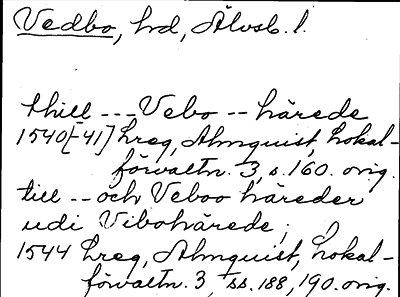 Vedbo, hrd, Älvsb. l.
thill --- Vebo -- härede
1540[-41] hreg, Almquist, Lokal-
förvaltn. 3, s. 160. orig.
till -- och Veboo häreder
udi Vibohärede;
1544 hreg, Almquist, Lokal-
förvaltn. 3, ss. 188, 190. orig.